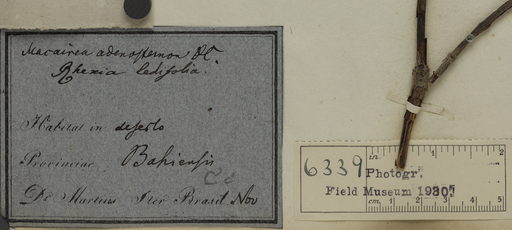 Macairea adenostemon DC
Rhexia ledifolia.
Habitat in deserto
Provinciae Bahiensis
Dr Martius Iter Brasil Nov
6339
Photogr.
Field Museum 1930
in. 1 2
cm. 1 2 3 4 5